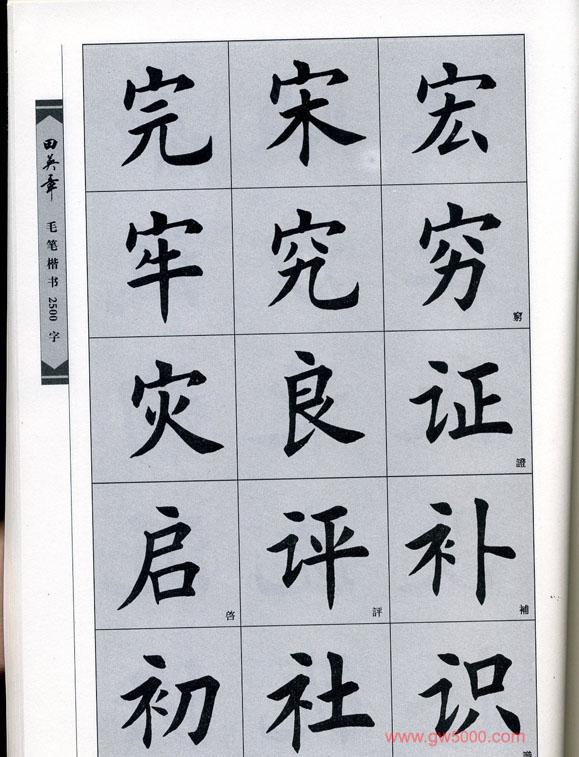 田英章
毛笔楷书2500字
完 宋 宏
牢 究 穷 窮
灾 良 证 證
启 啓 评 評 补 補
初 社 识
www.gw5000.com